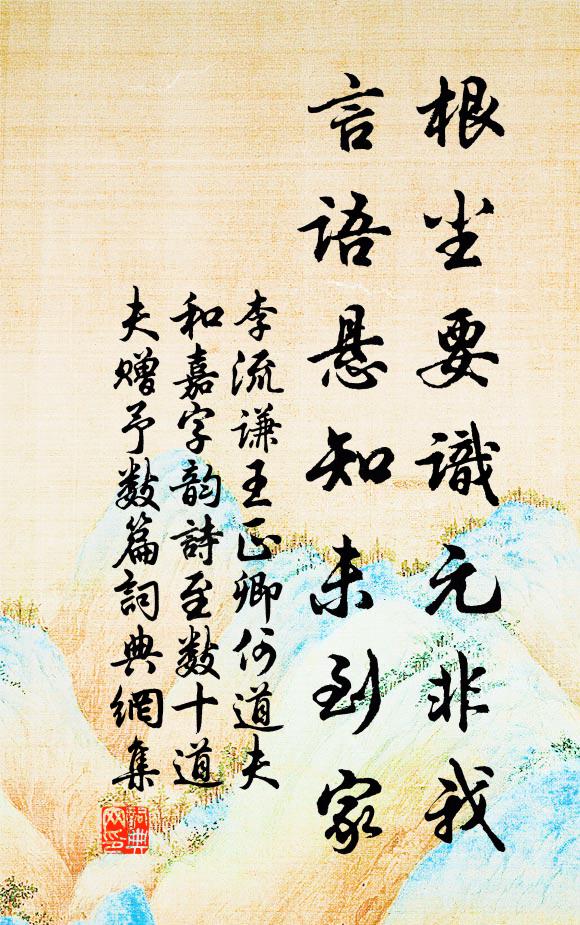 根尘要識元非我
言語悬知未到家
李流谦王正卿何道夫
和嘉字韵詩至数十道
夫赠予数篇詞典網集
詞典网印